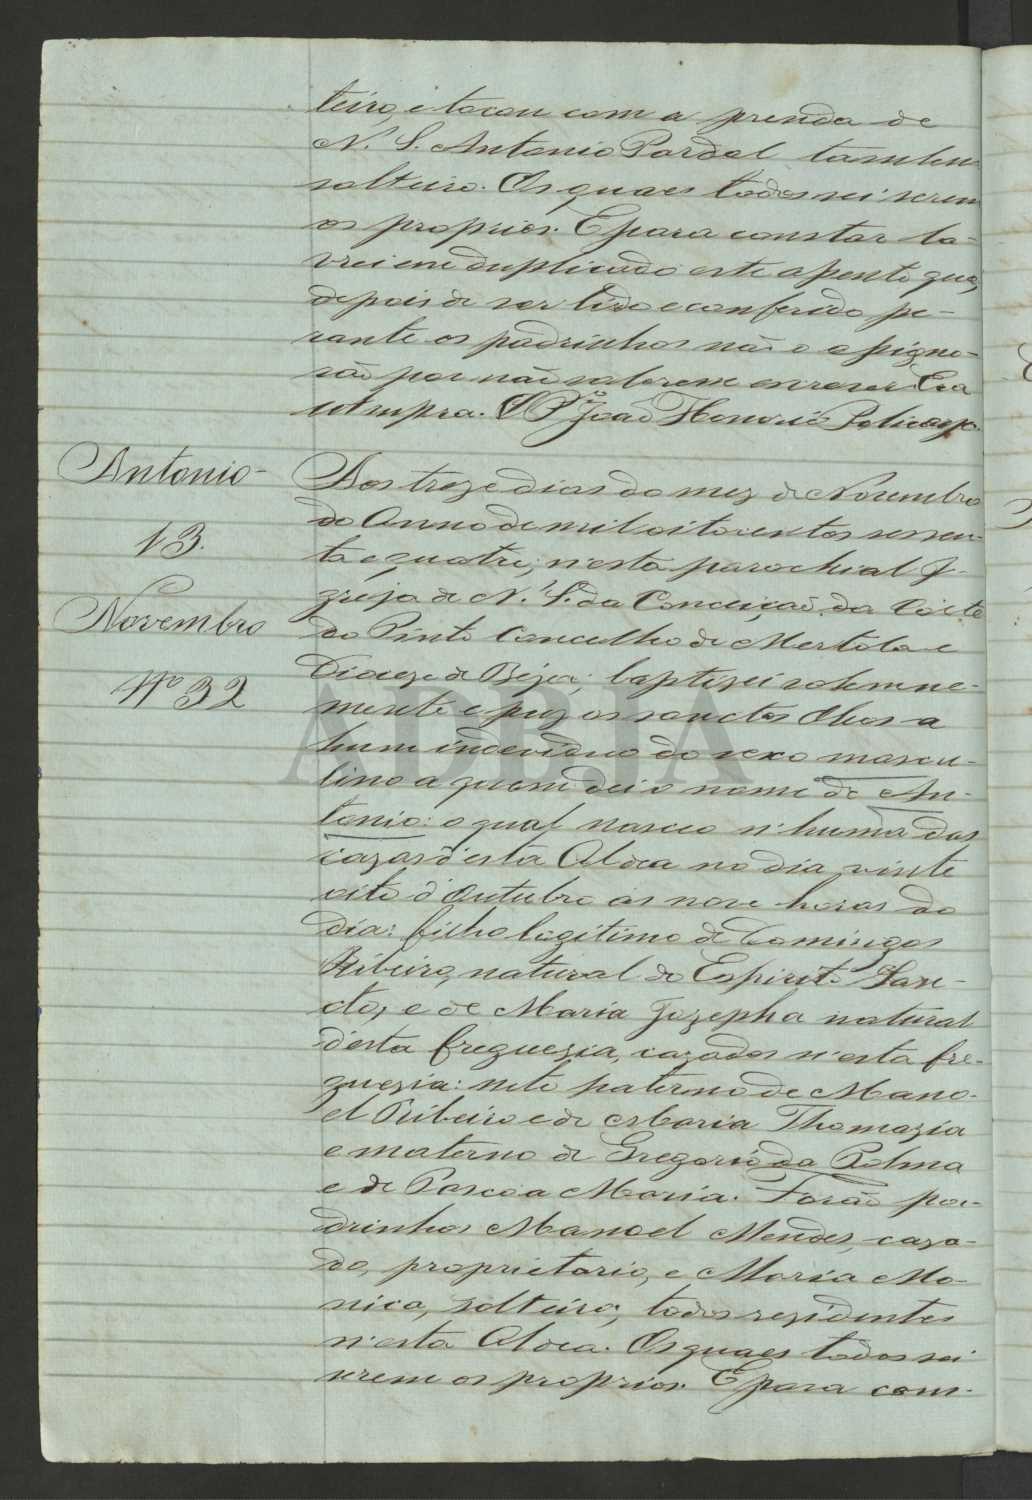 teiro, e tocou com a prenda de
N. S. Antonio Pardal tambem
solteiro. Os quaes todos sei serem
os proprios. E para constar la-
vrei em duplicado este assento que,
depois de ser lido e conferido pe-
rante os padrinhos não o assigna-
rão por não saberem escrever. Era
ut supra. O P.or João Honorio Policarpo.
Antonio-
13.
Novembro
Nº 32
Aos treze dias do mez de Novembro
do Anno de mil oitocentos sessen-
ta e quatro; n'esta parochial I-
greja de N. S. da Conceição da Corte
do Pinto Concelho de Mertola e
Diocese de Béja; baptizei solemne-
mente e puz os sanctos Oleos a
hum individuo do sexo mascu-
lino a quem dei o nome de An-
tonio: o qual nasceo n'huma das
cazas d'esta Aldea no dia vinte
oito d'Outubro ás nove horas do
dia: filho legitimo de Domingos
Ribeiro, natural do Espirito San-
cto, e de Maria Jozepha natural
d'esta freguezia, cazados n'esta fre-
guezia: neto paterno de Mano-
el Ribeiro e de Maria Thomazia
e materno de Gregorio da Palma
e de Pascoa Maria. Forão pa-
drinhos Manoel Mendes, caza-
do, proprietario, e Maria Mo-
nica, solteira, todos rezidentes
n'esta Aldea. Os quaes todos sei
serem os proprios. E para cons-
ADBJA